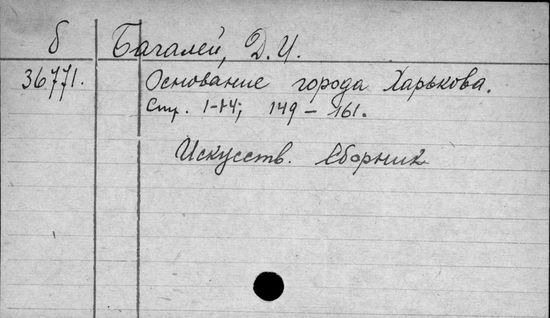 б Багалей, Д. И.
36771. Основание города Харькова.
Стр. 1-14; 149 – 161.
Искусств. Сборник